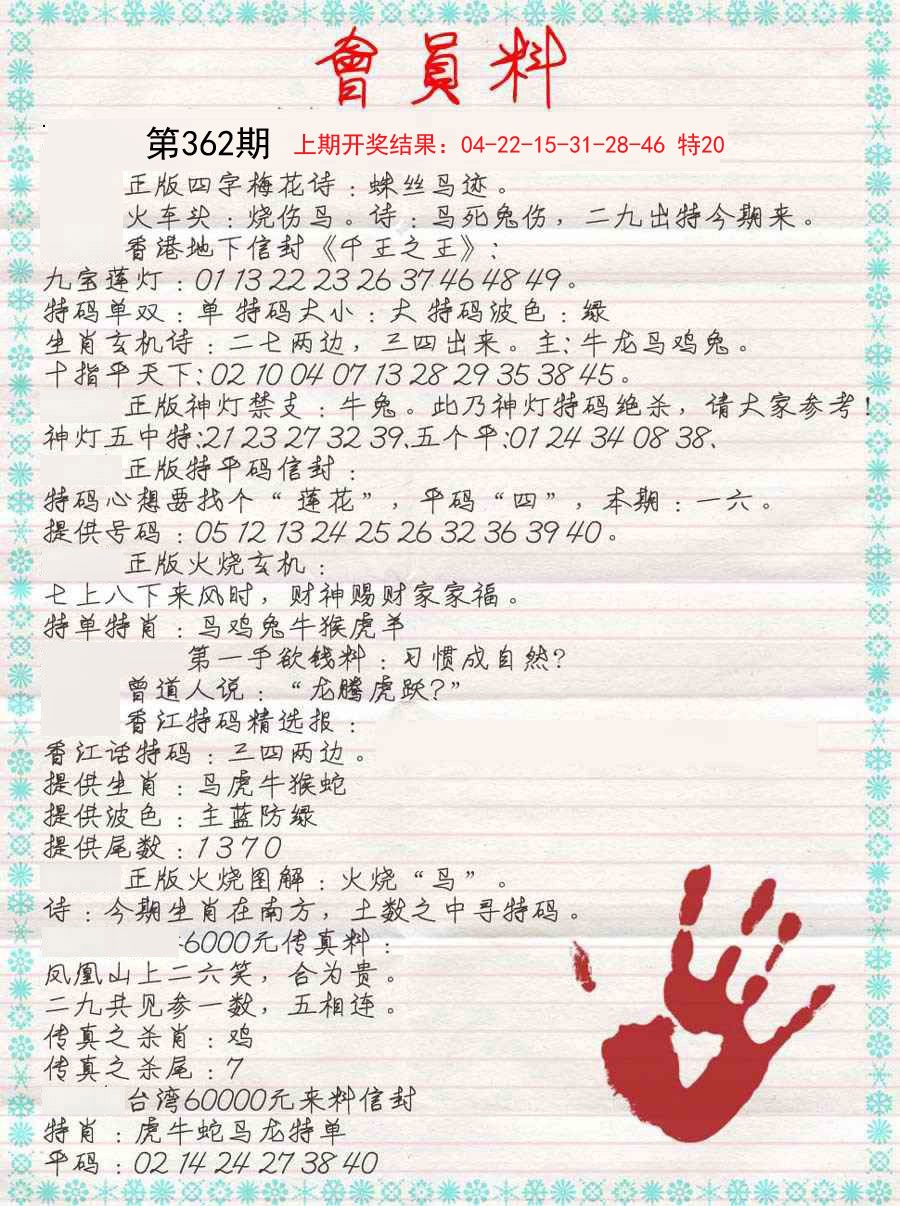 會員料
第362期 上期开奖结果：04-22-15-31-28-46 特20
正版四字梅花诗：蛛丝鸟迹。
火车头：烧伤鸟。诗：鸟死兔伤，二九出特今期来。
香港地下信封《千王之王》：
九宝莲灯：01 13 22 23 26 37 46 48 49。
特码单双：单 特码大小：大 特码波色：绿
生肖玄机诗：二七两边，三四出来。主：牛龙鸟鸡兔。
十指平天下：02 10 04 07 13 28 29 35 38 45。
正版神灯禁支：牛兔。此乃神灯特码绝杀，请大家参考！
神灯五中特：21 23 27 32 39、五个平：01 24 34 08 38、
正版特平码信封：
特码心想要找个“莲花”，平码“四”，本期：一六。
提供号码：05 12 13 24 25 26 32 36 39 40。
正版火烧玄机：
七上八下来风时，财神赐财家家福。
特单特肖：鸟鸡兔牛猴虎羊
第一手欲钱料：习惯成自然？
曾道人说：“龙腾虎跃？”
香江特码精选报：
香江话特码：三四两边。
提供生肖：鸟虎牛猴蛇
提供波色：主蓝防绿
提供尾数：1 3 7 0
正版火烧图解：火烧“鸟”。
诗：今期生肖在南方，土数之中寻特码。
6000元传真料：
凤凰山上二六笑，合为贵。
二九共见参一数，五相连。
传真之杀肖：鸡
传真之杀尾：7
台湾60000元来料信封
特肖：虎牛蛇鸟龙特单
平码：02 14 24 27 38 40